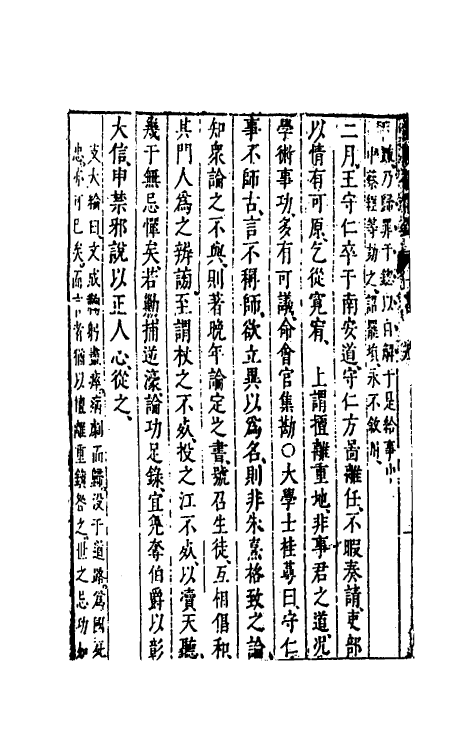 乃歸罪于總以自解于是給事中
中蔡經等劾之詔罷瑣永不敘用
二月王守仁卒于南安道守仁方啚離任不暇奏請吏部
以情有可原乞從寬宥 上謂擅離重地非事君之道況
學術事功多有可議命會官集勘〇大學士桂蕚曰守仁
事不師古言不稱師欲立異以為名則非朱熹格致之論
知衆論之不與則著晚年論定之書號召生徒互相倡和
其門人為之辨謗至謂杖之不死投之江不死以瀆天聽
幾于無忌憚矣若勦捕逆濠論功足錄宜免奪伯爵以彰
大信申禁邪說以正人心從之
支大綸曰文成鞠躬盡瘁病劇而歸沒于道路為國死
忠亦可已矣而言者猶以擅離重鎮咎之世之忌功如